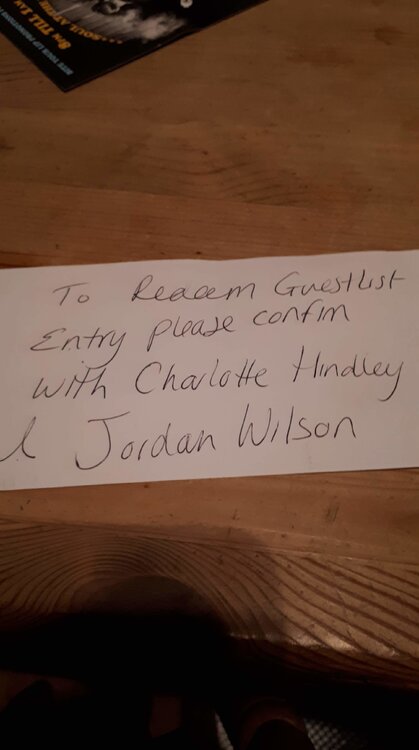 8PM TILL
To Redeem Guestlist
Entry please confim
with Charlotte Hindley
& Jordan Wilson